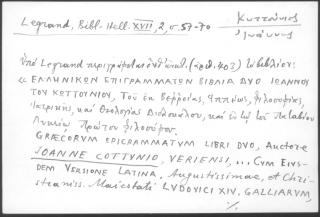 Legrand, Bibl. Hell. XVII, 2, σ. 57-70
Κωττούνιος
Ἰωάννης
Ὑπό Legrand περιγράφεται (ἀρ. 403) τό βιβλίον:
« ΕΛΛΗΝΙΚΩΝ ΕΠΙΓΡΑΜΜΑΤΩΝ ΒΙΒΛΙΑ ΔΥΟ ΙΩΑΝΝΟΥ
ΤΟΥ ΚΩΤΤΟΥΝΙΟΥ, Τοῦ ἐκ Βερροίας, Ἱππέως, φιλοσοφίας,
Ἰατρικῆς, καὶ Θεολογίας Διδασκάλου, καὶ ἐν τῷ Παταβίου
Λυκείῳ Πρώτου φιλοσόφου.
GRÆCORVM EPIGRAMMATVM LIBRI DVO, Auctore
IOANNE COTTVNIO, VERIENSI, ... Cum Eius-
DEM VERSIONE LATINA. Augustissimae, et Chri-
stianiss. Maiestati LVDOVICI XIV, GALLIARVM,
%